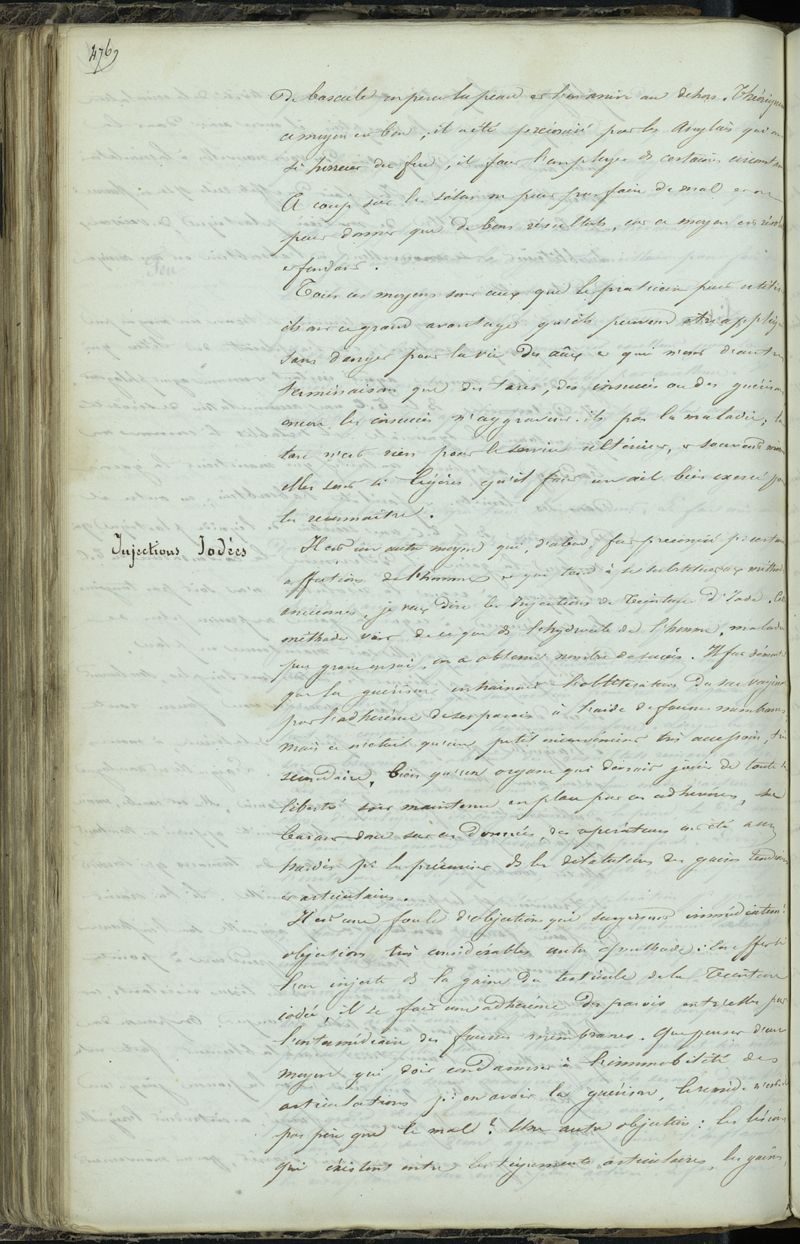 476
de bascule on perce la peau et l'on arrive au dehors. Théoriquem
ce moyen est bon, il a été préconisé par les Anglais qui ont
si horreur du feu, il faut l'employer ds certaines circonstan
A coup sûr le séton ne peut pas faire de mal et ne
peut donner que de bons résultats, car ce moyen est
et fondant.
Tous ces moyens sont ceux que le praticien peut utilis
ils ont ce grand avantage qu'ils peuvent être appliq
sans danger pour la vie des aux et qui n'ont d'autre
terminaison que des tares, des insuccès ou des guérisons
encore les insuccès n'aggravent-ils pas la maladie; la
tare n'est rien pour le service ultérieur, et souvent même
elles sont si légères qu'il faut un œil bien exercé pr
les reconnaître.
Injections Iodées
Il est un autre moyen qui, d'abord, fut préconisé pr certaines
affections de l'homme et qui tend à se substituer aux méthodes
anciennes, je veux dire les Injections de Teinture d'Iode. Cette
méthode vient de ce que ds l'hydrocèle de l'homme, maladie
peu grave en soi, on a obtenu nombre de succès. Il fut démontré
que la guérison entrainait l'oblitération du sac vaginal
par l'adhérence de ses parois à l'aide de fausses membranes
mais ce n'était qu'un petit inconvénient très accessoire, très
secondaire, bien qu'un organe qui devrait jouir de toute sa
liberté soit maintenu en place par ces adhérences, se
basant donc sur ces données, des opérateurs ont été assez
hardis pr les préconiser ds les dilatations des gaines tendineuses
et articulaires.
Il est une foule d'objections qui surgissent immédiatement
objections très considérables contre cette méthode: En effet si
l'on injecte ds la gaine du testicule de la Teinture
iodée, il se fait une adhérence des parois entr'elles par
l'intermédiaire des fausses membranes. Que penser d'un
moyen qui doit condamner à l'immobilité des
articulations pr en avoir la guérison, le remède n'est-il
pas pire que le mal? Une autre objection: les liaisons
qui existent entre les téguments articulaires, les gaines,